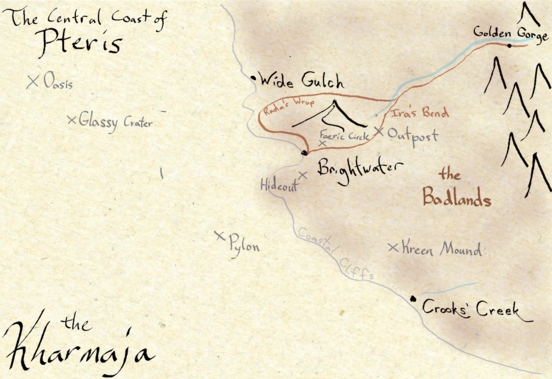 The Central Coast of
Pteris
Golden Gorge
Oasis
Wide Gulch
Glassy Crater
Rucha's Wrap
Ira's Bend
Faerie Circle
Outpost
Brightwater
Hideout
the
Badlands
Pylon
Coastal Cliffs
Kreen Mound
Crooks' Creek
the
Kharmaja